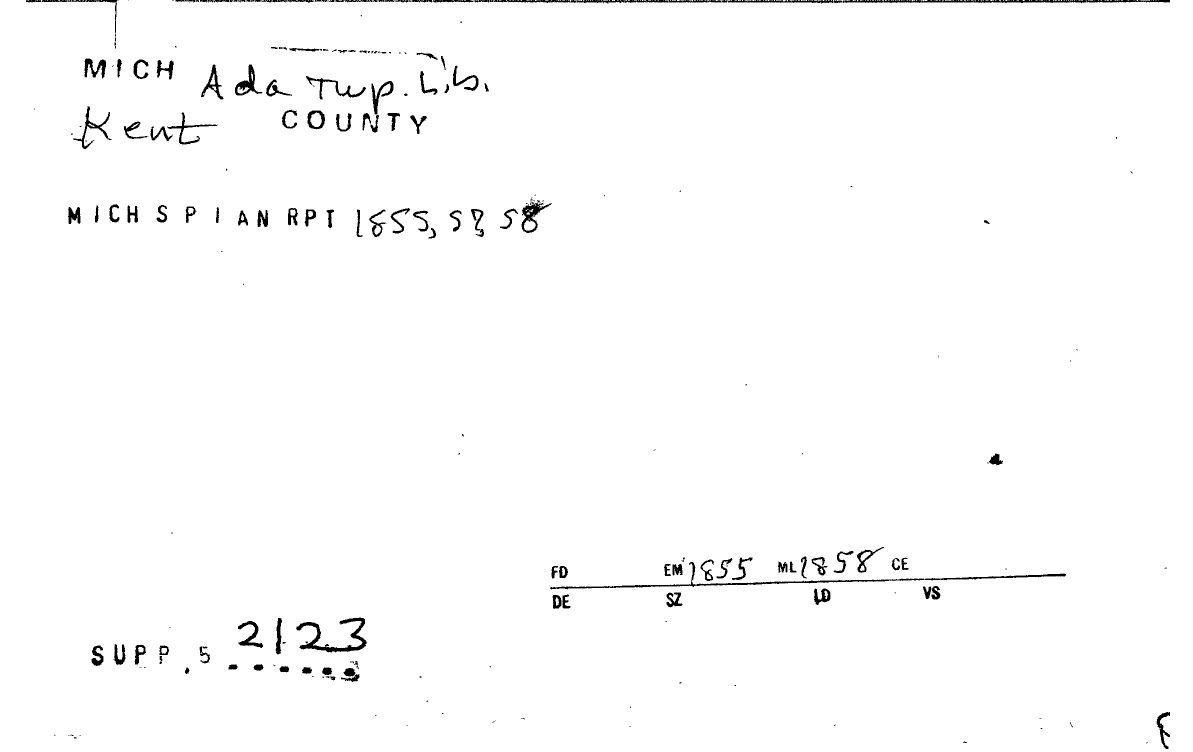 MICH Ada Twp. Lib.
Kent COUNTY
MICH S P I AN RPT 1855, 57, 58
FD EM 1855 ML 1858 CE
DE SZ LD VS
SUPP. 5 2123